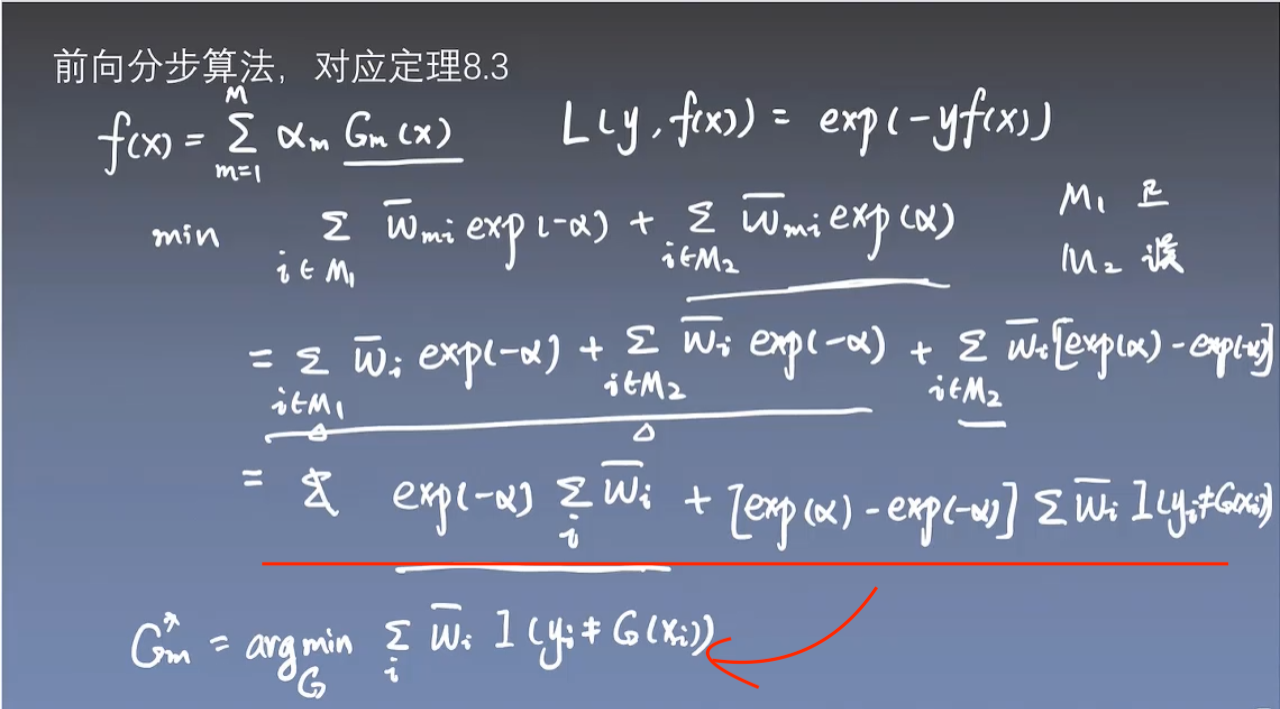 前向分步算法，对应定理8.3
f(x) = Σ_{m=1}^{M} α_m G_m(x) L(y, f(x)) = exp(-yf(x))
min Σ_{i∈M₁} w̄_{mi} exp(-α) + Σ_{i∈M₂} w̄_{mi} exp(α) M₁ 正
M₂ 误
= Σ_{i∈M₁} w̄_i exp(-α) + Σ_{i∈M₂} w̄_i exp(-α) + Σ_{i∈M₂} w̄_i [exp(α) - exp(-α)]
= exp(-α) Σ_i w̄_i + [exp(α) - exp(-α)] Σ w̄_i I(y_i≠G(x_i))
G_m^* = arg min_G Σ_i w̄_i I(y_i ≠ G(x_i))